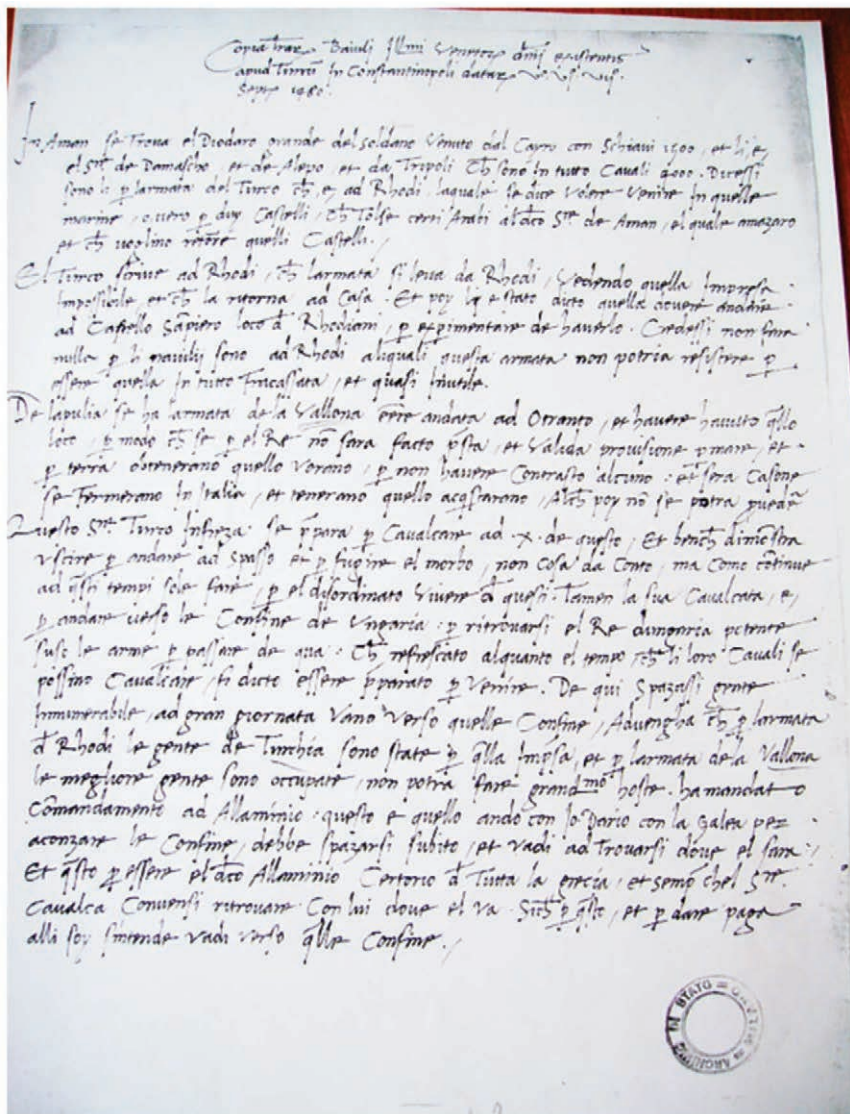 Copia trax Baiuli Illmi Venetor dmi existentis
apud Turcum In Constantinopoli datax v. vi. vii.
Septr 1480.
In Aman se Trova el Diodaro grande del soldano Venuto dal Cayro con Schiavi 1500, et li, e,
el Sre de Damascho, et de Alepo, et da Tripoli ch sono In tutto Cavali 4000. Dicessi
sono li p larmata del Turco ch, e, ad Rhodi, laquale se dice Volere Venire In quelle
marine, overo p duy Castelli, ch Tolse certi Arabi al dco Sre de Aman, el quale amazaro
et ch voglino retore quelli Castelli.
El Turco scrive ad Rhodi, ch larmata si leva da Rhodi, Vedendo quella Impresa
Impossibile, et ch la ritorna ad Casa. Et poy e stato dicto quella dovere andare
ad Castello Sapiero loco d Rhodiani, p exprimentare de haverlo. Credessi non fara
nulla p li navilij sono ad Rhodi aliquali questa armata non potria resistere p
essere quella In tutto Fracassata, et quasi Inutile.
De lapulia se ha larmata de la Vallona eere andata ad Otranto, et havere havuto qllo
loco, p modo ch se p el Re no sara facto psta, et Valida provisione p mare, et
p terra obtenerano quello Vorano, p non havere Contrasto alcuno: et sera Casone
se Fermerano In Italia, et tenerano quello acqstarano, poy no se potra
Questo Sre Turco Infreza se ppara p Cavalcare ad .x. de questo, Et bench dimostra
Vscire p andare ad Spasso et p fugire el morbo, non Cosa da Conto, ma Como cotinue
ad qsti tempi sole fare, p el disordinato Vivere d questi. Tamen la sua Cavalcata, e,
p andare verso le Confine de Vngaria: p ritrovarsi el Re dungaria potente
suso le arme p passare de qua: Ch refrescato alquanto el tempo, ch li loro Cavali se
possino Cavalcare, fi dicto essere pparato p Venire. De qui Spazassi gente
Innumerabile, ad gran giornata Vano Verso quelle Confine, Advengha ch p larmata
d Rhodi le gente de Turchia sono state p qlla Impsa, et p larmata de la Vallona
le megliore gente sono occupate, non potra fare grandmo hoste. ha mandato
Comandamento ad Allaminio: questo e quello ando con Jo Dario con la Galea per
aconzare le Confine, debbe spazarsi subito, et Vadi ad Trovarsi dove el sara:
Et qsto p essere el dco Allaminio Certorio d Tutta la grecia, et semp chel Sre
Cavalca Conviensi ritrovare Con lui dove el va. Sich p qsto, et p dare paga
alli soy sintende vadi verso qlle Confine.
ARCHIVIO DI STATO